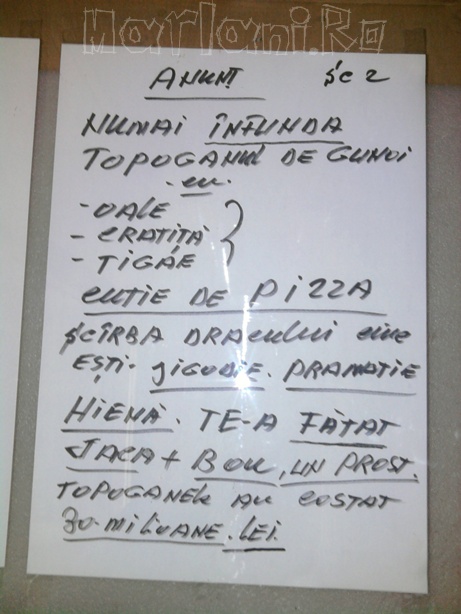 Marlani.Ro
ANUNȚ șc 2
NUMAI ÎNFUNDA
TOPOGANUL DE GUNOI
- cu -
- OALE
- CRATIȚĂ
- TIGAE
CUTIE DE PIZZA
ȘCÎRBA DRACULUI cine
EȘTI - JIGODIE. DRAMATIE
HIENĂ. TE-A FĂTAT
VACA + BOU, UN PROST.
TOPOGANELE AU COSTAT
30-MILIOANE. LEI.